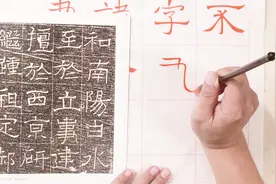 字
和南陽白水
至於立事建
擅於西京研
繼踵
定